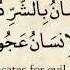 سَانُ بِالشَّرِّ دُ
لْإِنسَانُ عَجُو
cates for evil